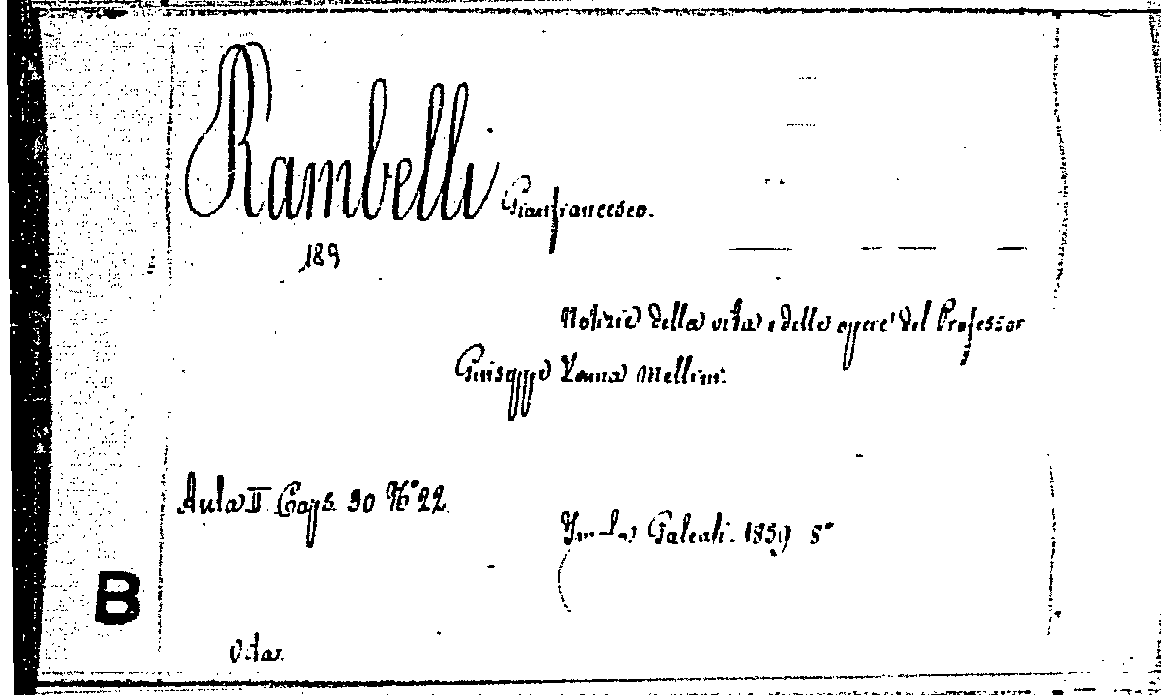 Rambelli Gianfrancesco.
189
Notizie della vita e delle opere del Professor
Giuseppe Ignazio Mellini.
Aula II Caps. 30 N.° 22.
Imola Galeati. 1859 8°
B